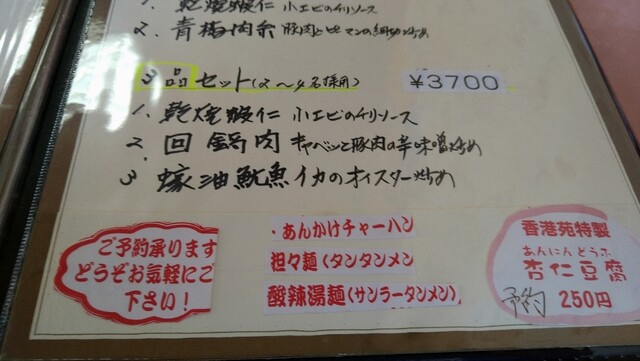 1. 乾焼蝦仁 小エビのチリソース
2. 青椒肉糸 豚肉とピーマンの細切り炒め
3品セット(2〜4名様用) ¥3700
1. 乾焼蝦仁 小エビのチリソース
2. 回鍋肉 キャベツと豚肉の辛味噌炒め
3 蠔油魷魚 イカのオイスター炒め
ご予約承ります
どうぞお気軽にご
下さい!
・あんかけチャーハン
担々麺(タンタンメン
酸辣湯麺(サンラータンメン)
香港苑特製
あんにんどうふ
杏仁豆腐
予約 250円